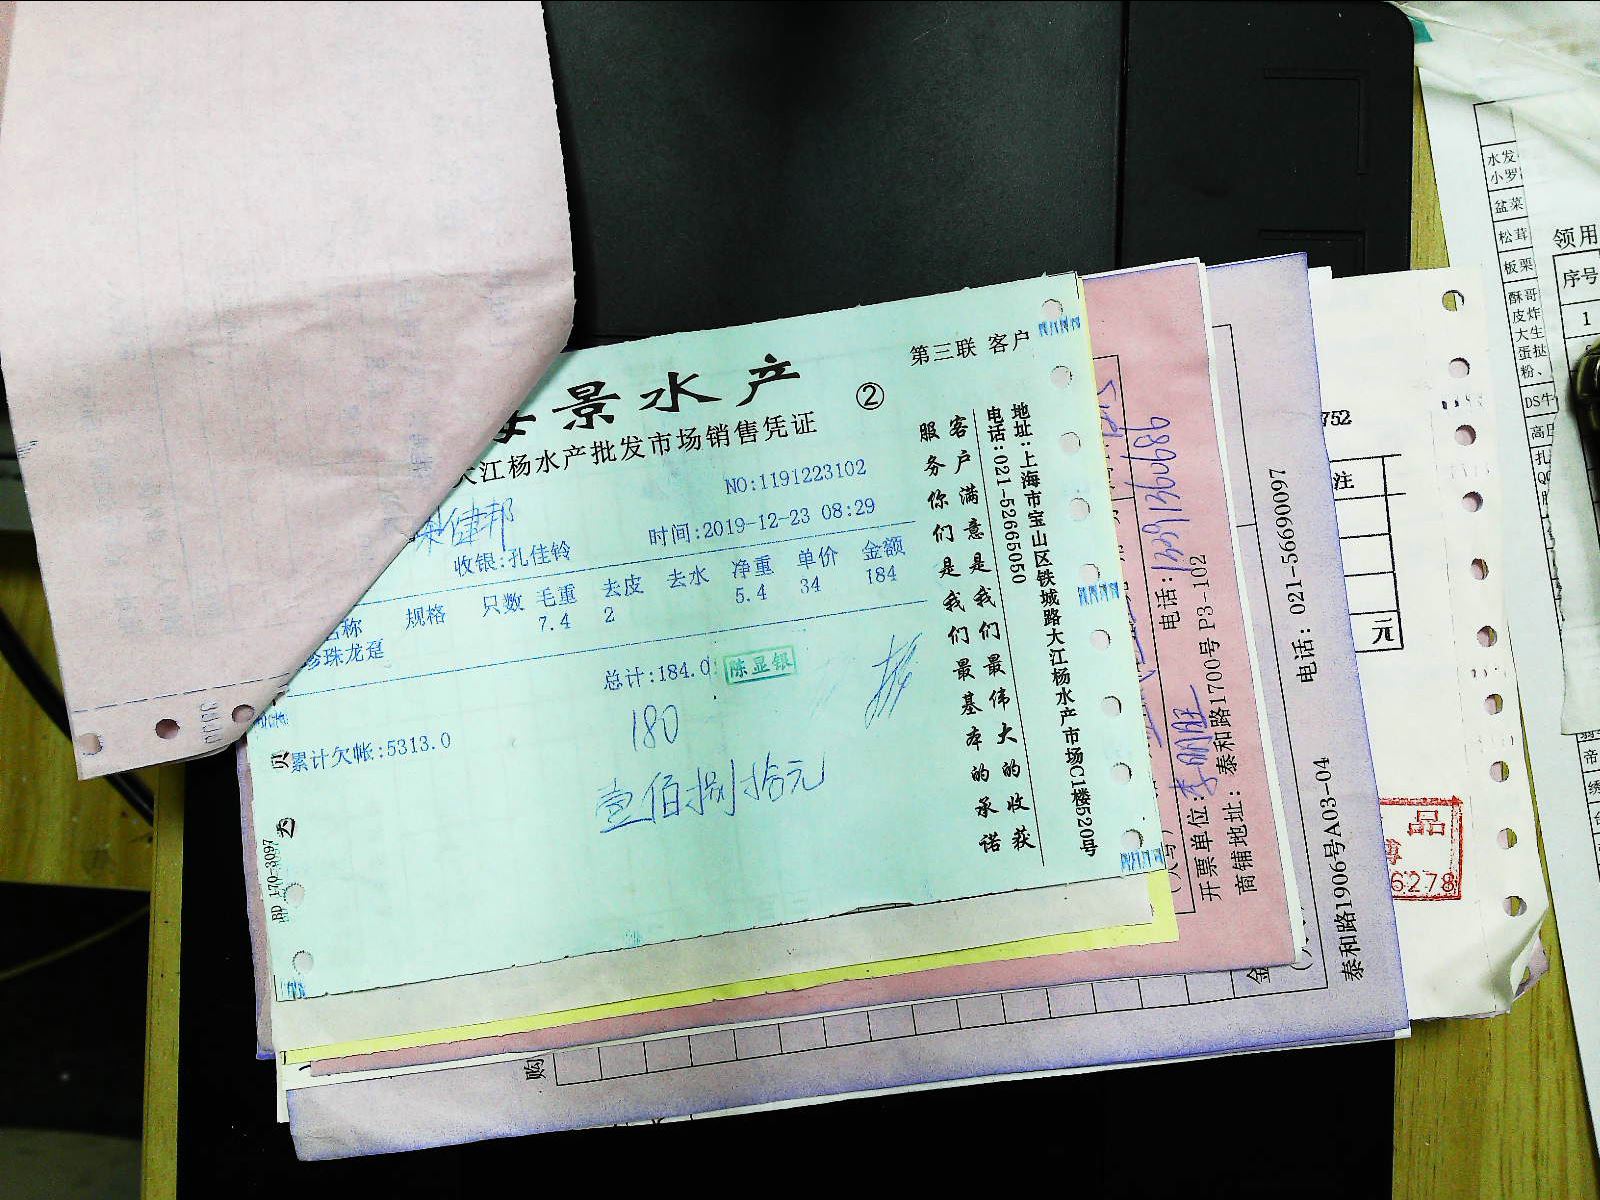 第三联 客户
景水产
②
大江杨水产批发市场销售凭证
NO:1191223102
健邦
时间:2019-12-23 08:29
收银:孔佳铃
名称 规格 只数 毛重 去皮 去水 净重 单价 金额
珍珠龙趸 7.4 2 5.4 34 184
总计:184.0
陈显银
180
累计欠帐:5313.0
壹佰捌拾元
BD 170-3097
服务你们是我们最基本的承诺
客户满意是我们最伟大的收获
电话:021-52665050
地址:上海市宝山区铁城路大江杨水产市场C1楼520号
电话:
开票单位:李明旺
商铺地址:泰和路1700号 P3-102
电话: 021-56690097
泰和路1906号A03-04
购
金
752
注
元
品
6278
水发
小罗
盆菜
松茸
板栗
酥哥
皮炸
大生
蛋挞
粉、
DS牛
领用
序号
1